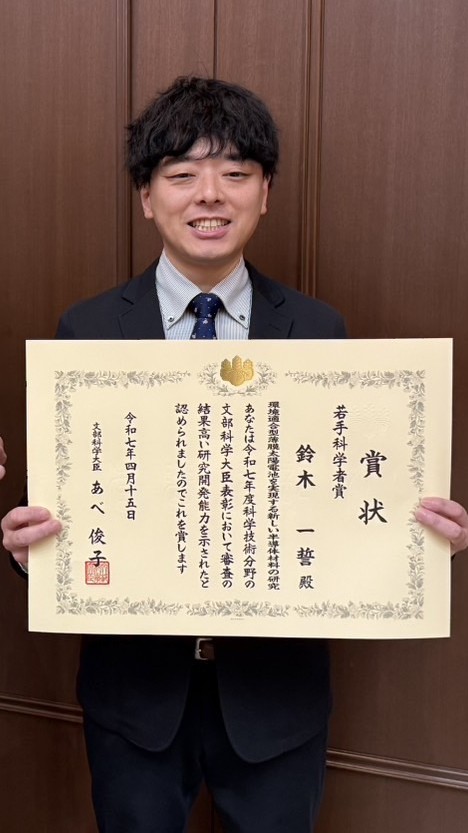 賞状
若手科学者賞
環境適合型薄膜太陽電池を実現する新しい半導体材料の研究
鈴木 一誓 殿
あなたは令和七年度科学技術分野の
文部科学大臣表彰において審査の
結果高い研究開発能力を示されたと
認められましたのでこれを賞します
令和七年四月十五日
文部科学大臣 あべ 俊子